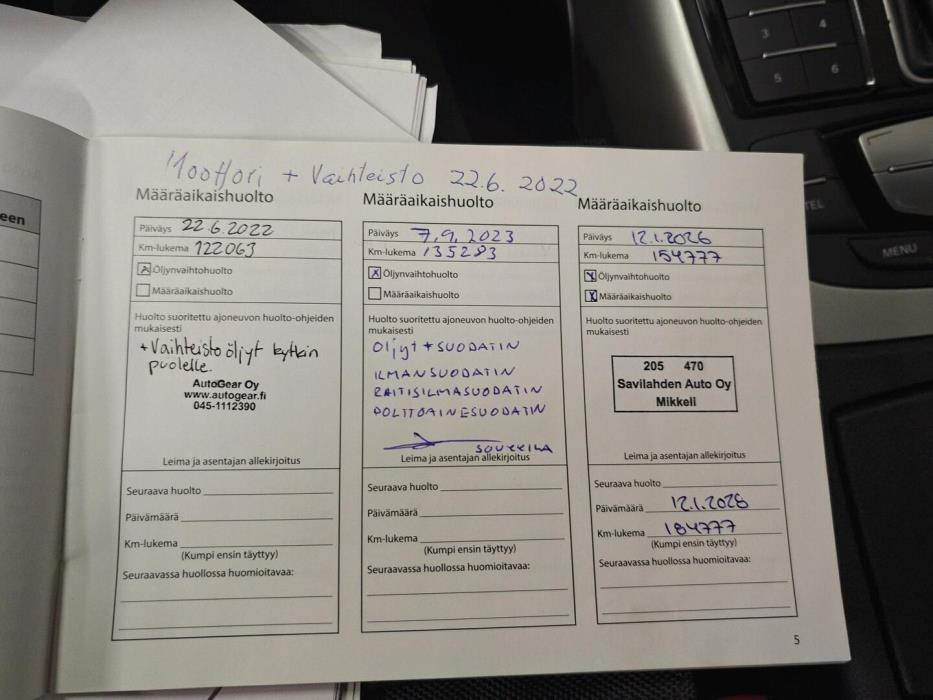 Moottori + Vaihteisto 22.6. 2022
Määräaikaishuolto
Päiväys 22.6.2022
Km-lukema 122063
Öljynvaihtohuolto
Määräaikaishuolto
Huolto suoritettu ajoneuvon huolto-ohjeiden
mukaisesti
+Vaihteisto öljyt kytkin
puolelle.
AutoGear Oy
www.autogear.fi
045-1112390
Leima ja asentajan allekirjoitus
Seuraava huolto
Päivämäärä
Km-lukema
(Kumpi ensin täyttyy)
Seuraavassa huollossa huomioitavaa:
Määräaikaishuolto
Päiväys 7.9.2023
Km-lukema 135283
Öljynvaihtohuolto
Määräaikaishuolto
Huolto suoritettu ajoneuvon huolto-ohjeiden
mukaisesti
Öljyt + SUODATIN
ILMANSUODATIN
RAITISILMASUODATIN
POLTTOAINESUODATIN
SOUKKILA
Leima ja asentajan allekirjoitus
Seuraava huolto
Päivämäärä
Km-lukema
(Kumpi ensin täyttyy)
Seuraavassa huollossa huomioitavaa:
Määräaikaishuolto
Päiväys 12.1.2026
Km-lukema 154777
Öljynvaihtohuolto
Määräaikaishuolto
Huolto suoritettu ajoneuvon huolto-ohjeiden
mukaisesti
205 470
Savilahden Auto Oy
Mikkeli
Leima ja asentajan allekirjoitus
Seuraava huolto
Päivämäärä 12.1.2028
Km-lukema 184777
(Kumpi ensin täyttyy)
Seuraavassa huollossa huomioitavaa:
5
een
3
4
5
6
TEL
MENU